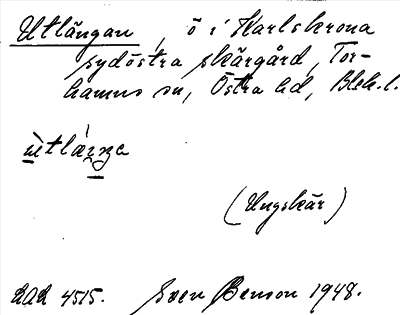 Utlängan, ö i Karlskrona
sydöstra skärgård, Tor-
hamns sn, Östra hd, Blek. l.
(Ungskär)
4515. Sven Benson 1948.